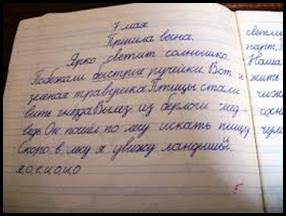 7 мая
Пришла весна.
Ярко светит солнышко.
Побежали быстрые ручейки. Вот и
зеленая травушка Птицы стали
вить гнёзда Вылез из берлоги мед-
ведь Он пошёл по лесу искать пищу
Скоро в лесу я увижу ландыши.
5
парт
Наша
жить
чиж
сосн